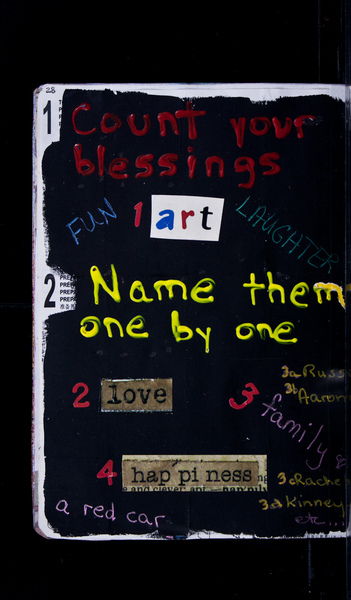 28
1
Count your
blessings
FUN 1 art LAUGHTER
2
Name them
one by one
3a Russ
3b Aaron
2 love 3 family &
4 hap pi ness
3c Rache
3d Kinney
a red car etc...